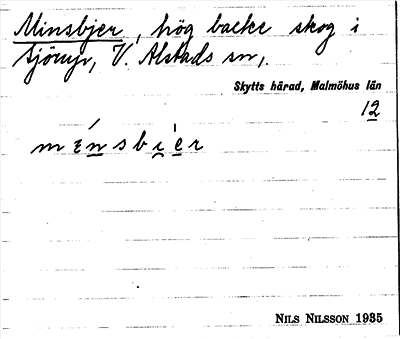 Minsbjer, hög backe skog i
V. Alstads sn,
Skytts härad, Malmöhus län
12
NILS NILSSON 1935